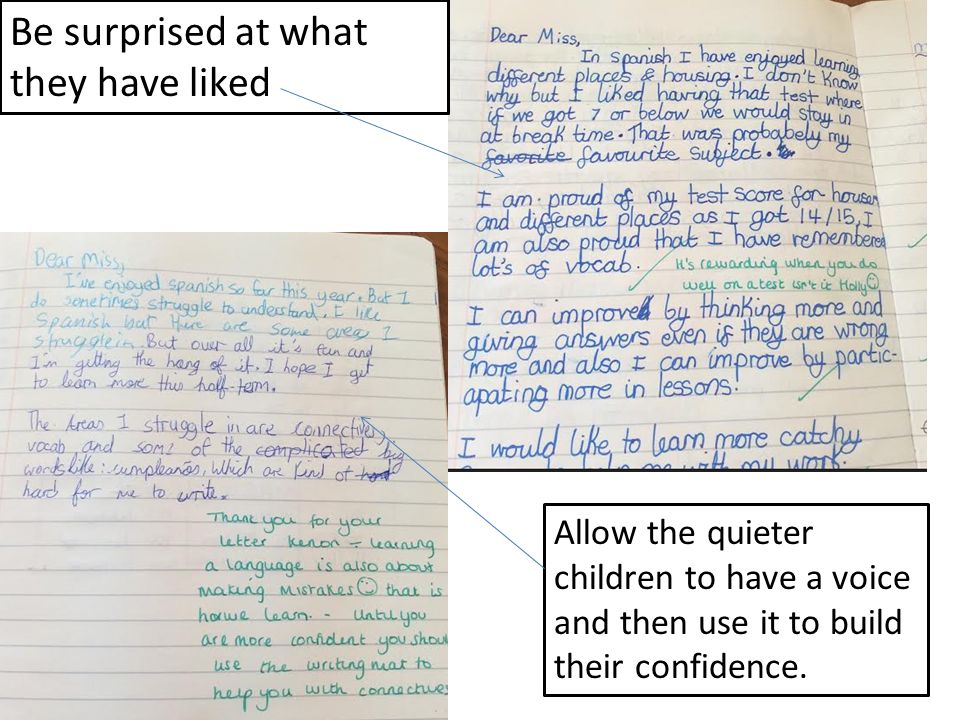 Be surprised at what
they have liked
Dear Miss,
In Spanish I have enjoyed learning
different places & housing. I don't know
why but I liked having that test where
if we got 7 or below we would stay in
at break time. That was probabely my
favorite favourite subject.
I am proud of my test score for houses
and different places as I got 14/15, I
am also proud that I have remembered
lot's of vocab.
It's rewarding when you do
well on a test isn't it Holly☺
I can improve by thinking more and
giving answers even if they are wrong
more and also I can improve by partic-
apating more in lessons.
I would like to learn more catchy
me with my work.
Dear Miss,
I've enjoyed spanish so far this year. But I
do sometimes struggle to understand. I like
Spanish but there are some areas I
struggle in. But over all it's fun and
I'm getting the hang of it. I hope I get
to learn more this half-term.
The areas I struggle in are connectives,
vocab and some of the complicated big
words like: cumpleanos, which are kind of hard
hard for me to write.
Thank you for your
letter Kenon - learning
a language is also about
making mistakes ☺ that is
how we learn. - Until you
are more confident you shou
use the writing mat to
help you with connectives
Allow the quieter
children to have a voice
and then use it to build
their confidence.